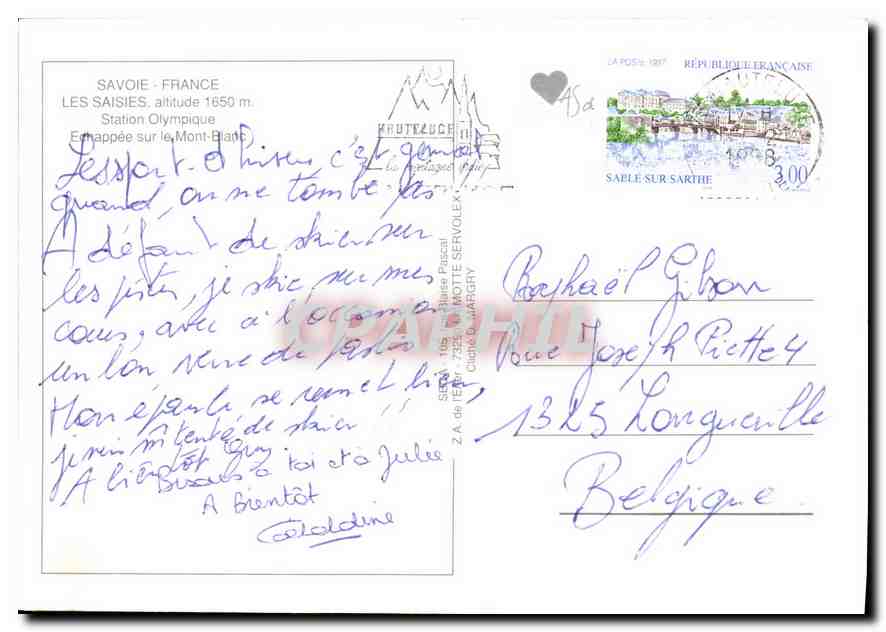 SAVOIE - FRANCE
LES SAISIES, altitude 1650 m.
Station Olympique
Echappée sur le Mont-Blanc
Les sport d'hiver c'est genial
quand, on ne tombe pas
A défaut de skier sur
les pistes, je skie sur mes
cours, avec à l'occasion
un bon verre de pastis
Mon épaule se remet bien,
je suis tenté de skier !!
A bientôt Guy
Bisous à toi et à Julie
A Bientôt
Géraldine
HAUTELUCE
SEPA - 105, Blaise Pascal
Z.A. de l'Erier - 732 MOTTE SERVOLEX
Cliché D. MARGRY
CPARHIL
45d
LA POSTE 1997 RÉPUBLIQUE FRANÇAISE
SABLÉ-SUR-SARTHE 3,00
Raphaël Gibon
Rue Joseph Piette 4
1325 Longueville
Belgique